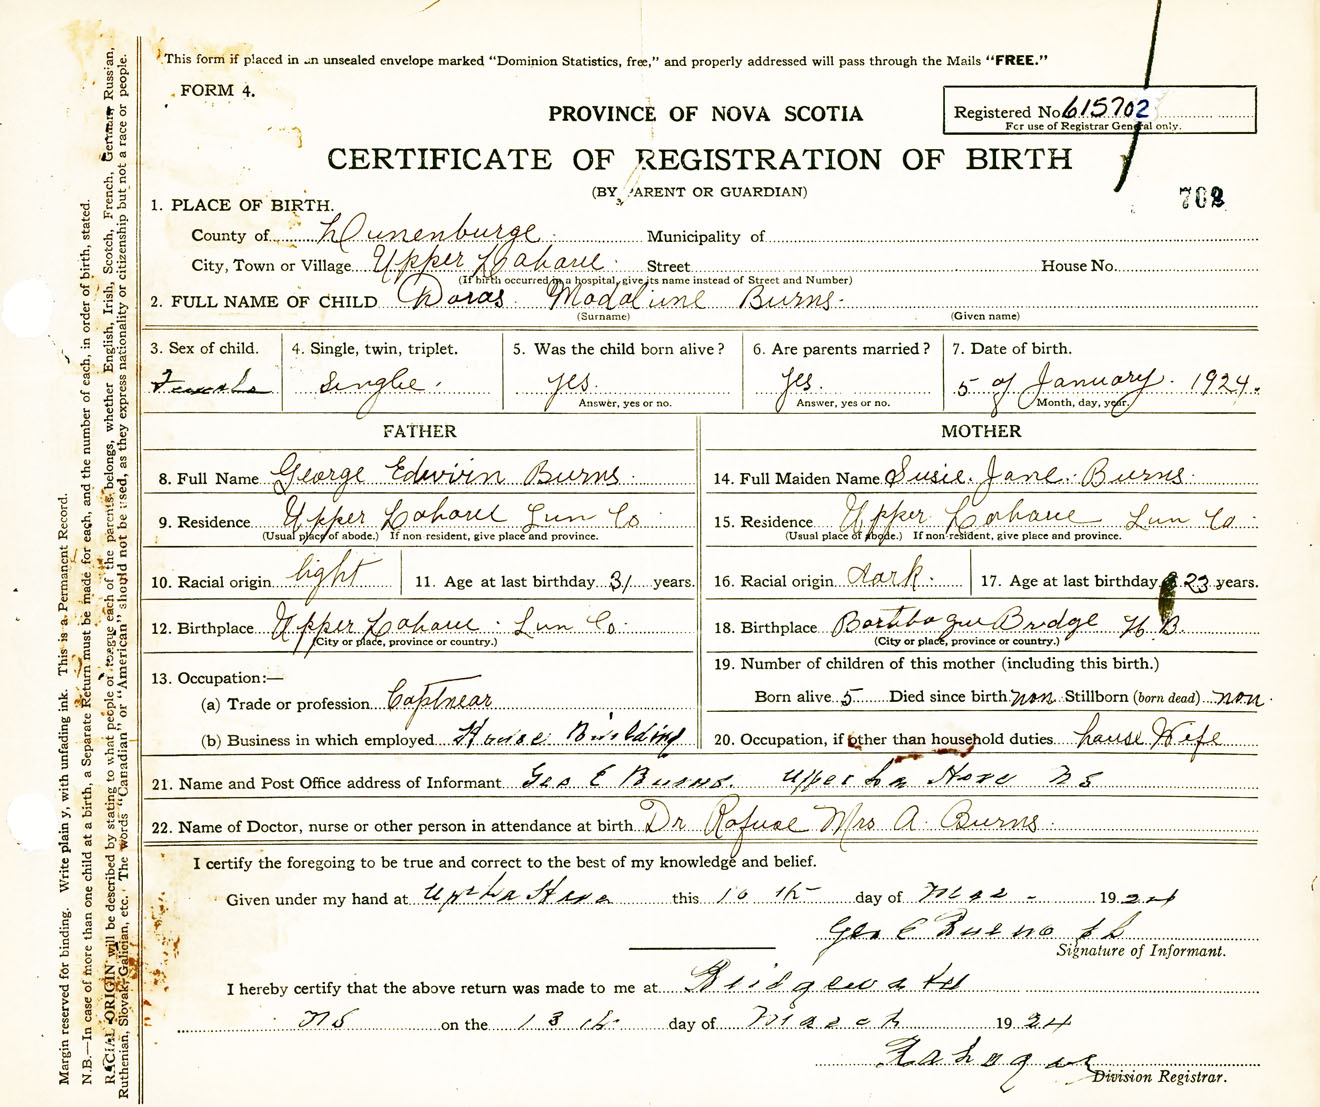 This form if placed in an unsealed envelope marked "Dominion Statistics, free," and properly addressed will pass through the Mails "FREE."
FORM 4.
Registered No. 615702
For use of Registrar General only.
PROVINCE OF NOVA SCOTIA
CERTIFICATE OF REGISTRATION OF BIRTH
(BY PARENT OR GUARDIAN)
702
1. PLACE OF BIRTH.
County of Lunenburge Municipality of
City, Town or Village Upper Lahave Street House No.
(If birth occurred in a hospital, give its name instead of Street and Number)
2. FULL NAME OF CHILD Doras Madalune Burns
(Surname) (Given name)
3. Sex of child. 4. Single, twin, triplet. 5. Was the child born alive? 6. Are parents married? 7. Date of birth.
Female Singlie. yes. yes. 5 of January. 1924.
Answer, yes or no. Answer, yes or no. Month, day, year.
FATHER MOTHER
8. Full Name George Edwin Burns 14. Full Maiden Name Susie Jane Burns
9. Residence Upper Lahave Lun Co 15. Residence Upper Lahave Lun Co
(Usual place of abode.) If non resident, give place and province. (Usual place of abode.) If non-resident, give place and province.
10. Racial origin light 11. Age at last birthday 31 years. 16. Racial origin dark. 17. Age at last birthday 23 years.
12. Birthplace Upper Lahave Lun Co 18. Birthplace Bridge N B.
(City or place, province or country.) (City or place, province or country.)
13. Occupation:— 19. Number of children of this mother (including this birth.)
(a) Trade or profession Born alive 5 Died since birth non Stillborn (born dead) non
(b) Business in which employed House Building 20. Occupation, if other than household duties house Wife
21. Name and Post Office address of Informant Geo E Burns. Upper La Have N S
22. Name of Doctor, nurse or other person in attendance at birth Dr Rafuse Mrs A. Burns
I certify the foregoing to be true and correct to the best of my knowledge and belief.
Given under my hand at Upr La Have this 10 th day of Mar 1924
Geo E Burns
Signature of Informant.
I hereby certify that the above return was made to me at Bridgewater
N S on the 13 th day of March 1924
Division Registrar.
Margin reserved for binding. Write plainly, with unfading ink. This is a Permanent Record.
N.B.—In case of more than one child at a birth, a Separate Return must be made for each, and the number of each, in order of birth, stated.
RACIAL ORIGIN will be described by stating to what people or race each of the parents belongs, whether English, Irish, Scotch, French, German, Russian,
Ruthenian, Slovak, Galician, etc. The words "Canadian" or "American" should not be used, as they express nationality or citizenship but not a race or people.